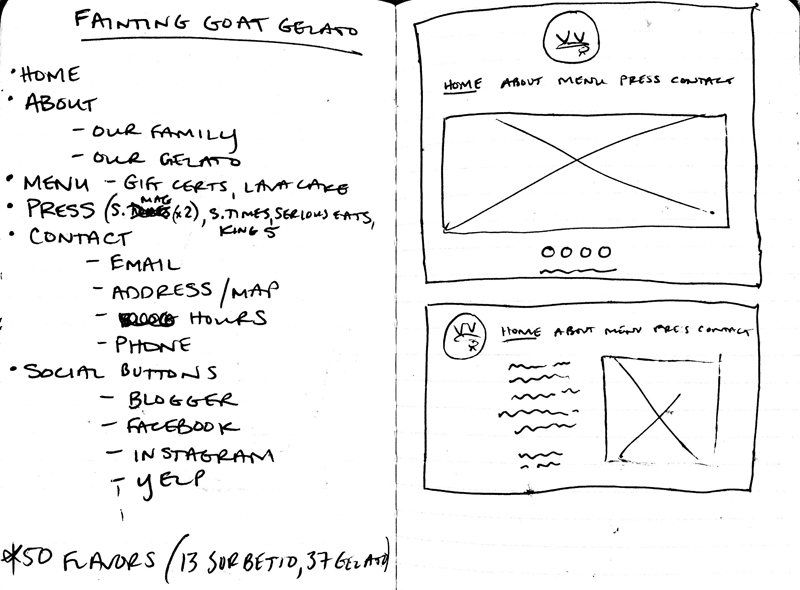 FAINTING GOAT GELATO
• HOME
• ABOUT
– OUR FAMILY
– OUR GELATO
• MENU – GIFT CERTS, LAVA CAKE
• PRESS (S. MAG (x2), S. TIMES, SERIOUS EATS,
KING 5
• CONTACT
– EMAIL
– ADDRESS/MAP
– HOURS
– PHONE
• SOCIAL BUTTONS
– BLOGGER
– FACEBOOK
– INSTAGRAM
– YELP
*50 FLAVORS (13 SORBETTO, 37 GELATO)
HOME ABOUT MENU PRESS CONTACT
HOME ABOUT MENU PRES CONTACT